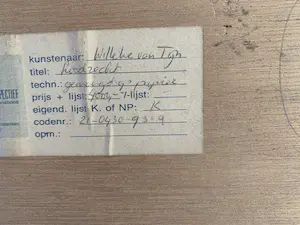 PECTIEF
kunstenaar: Willeke van Tijn
titel: Loodrecht
techn.: gemengd op papier
prijs + lijst: -lijst:
eigend. lijst K. of NP: K
codenr.: 21-0430-93-9
opm.: